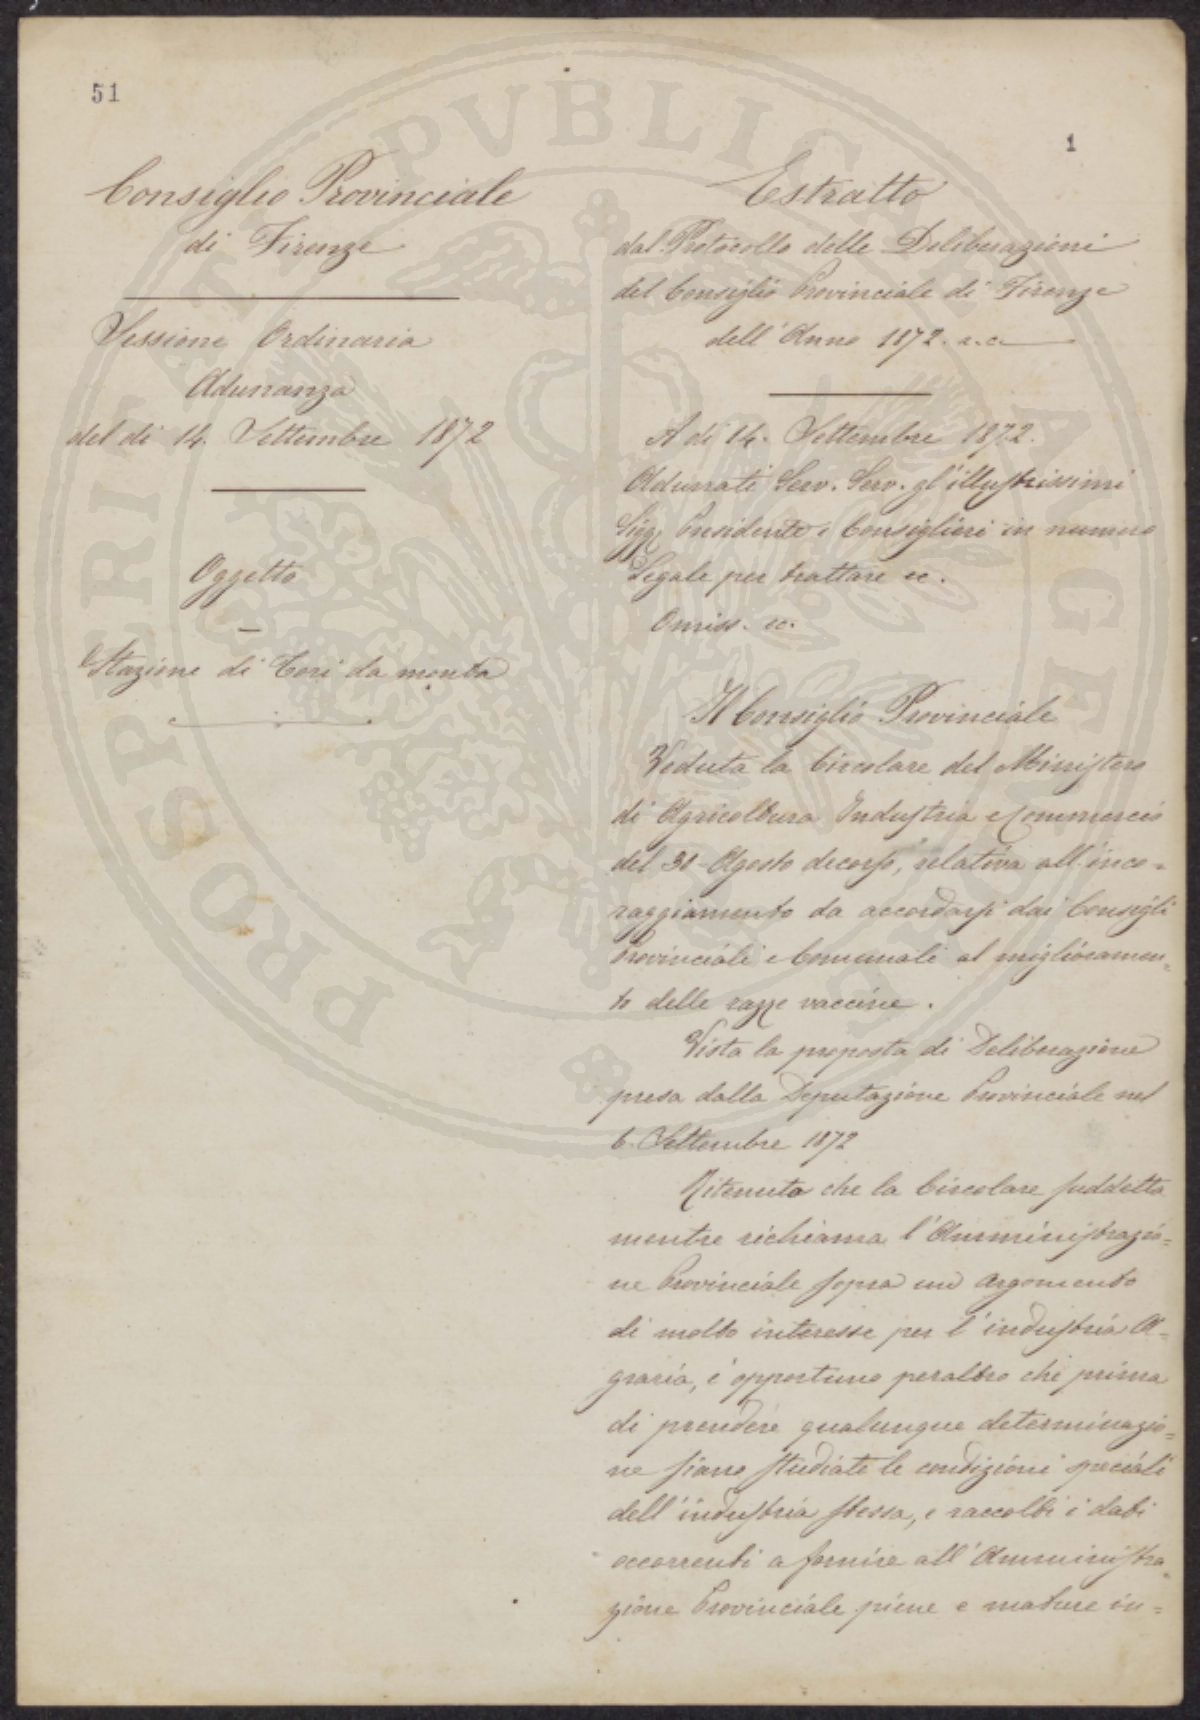 51
1
Consiglio Provinciale
di Firenze
Sessione Ordinaria
Adunanza
del dì 14. Settembre 1872
Oggetto
Stazione di Tori da monta
Estratto
dal Protocollo delle Deliberazioni
del Consiglio Provinciale di Firenze
dell'Anno 1872.
A dì 14. Settembre 1872.
Adunati Serv. Serv. gl'illustrissimi
Sigg. Presidente e Consiglieri in numero
Legale per trattare ec.
Omiss. ec.
Il Consiglio Provinciale
Veduta la Circolare del Ministero
di Agricoltura Industria e Commercio
del 31 Agosto decorso, relativa all'inco-
raggiamento da accordarsi dai Consigli
Provinciali e Comunali al miglioramen-
to delle razze vaccine.
Vista la proposta di Deliberazione
presa dalla Deputazione Provinciale nel
6. Settembre 1872
Ritenuto che la Circolare suddetta
mentre richiama l'Amministrazio-
ne Provinciale sopra un argomento
di molto interesse per l'industria A-
graria, è opportuno peraltro che prima
di prendere qualunque determinazio-
ne siano studiate le condizioni speciali
dell'industria stessa, e raccolti i dati
occorrenti a fornire all'Amministra-
zione Provinciale piene e mature in-
PROSPERITATI PVBLICAE AVGENDAE